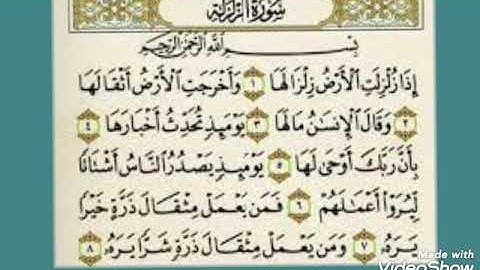 سُورَةُ الزَّلْزَلَةِ
بِسْمِ اللَّهِ الرَّحْمَٰنِ الرَّحِيمِ
إِذَا زُلْزِلَتِ الْأَرْضُ زِلْزَالَهَا ١ وَأَخْرَجَتِ الْأَرْضُ أَثْقَالَهَا
٢ وَقَالَ الْإِنسَٰنُ مَا لَهَا ٣ يَوْمَئِذٍ تُحَدِّثُ أَخْبَارَهَا ٤
بِأَنَّ رَبَّكَ أَوْحَىٰ لَهَا ٥ يَوْمَئِذٍ يَصْدُرُ النَّاسُ أَشْتَاتًا
لِّيُرَوْا أَعْمَٰلَهُمْ ٦ فَمَن يَعْمَلْ مِثْقَالَ ذَرَّةٍ خَيْرًا
يَرَهُ ٧ وَمَن يَعْمَلْ مِثْقَالَ ذَرَّةٍ شَرًّا يَرَهُ ٨
Made with
VideoShow